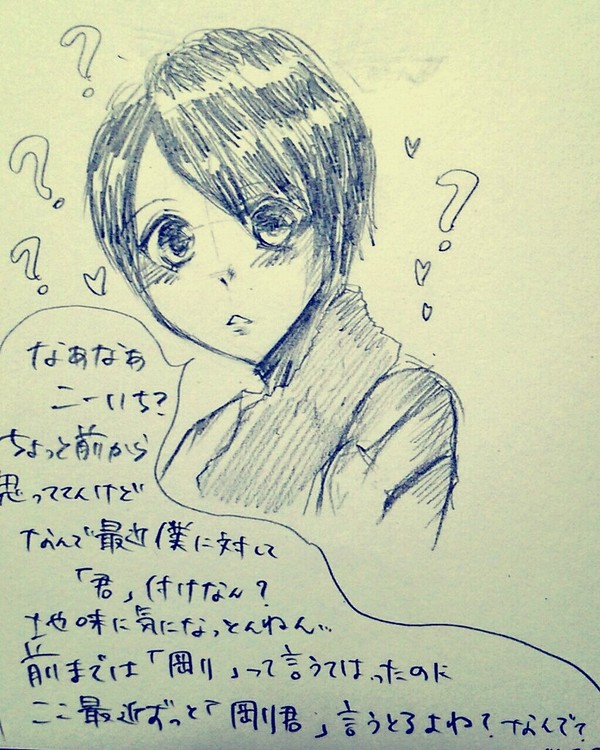 なあなあ
こーいち?
ちょっと前から
思っててんけど
なんで最近僕に対して
「君」付けなん?
地味に気になっとんねん…
前までは「剛」って言うてはったのに
ここ最近ずっと「剛君」言うとるよね?なんで?
?
?
?
?